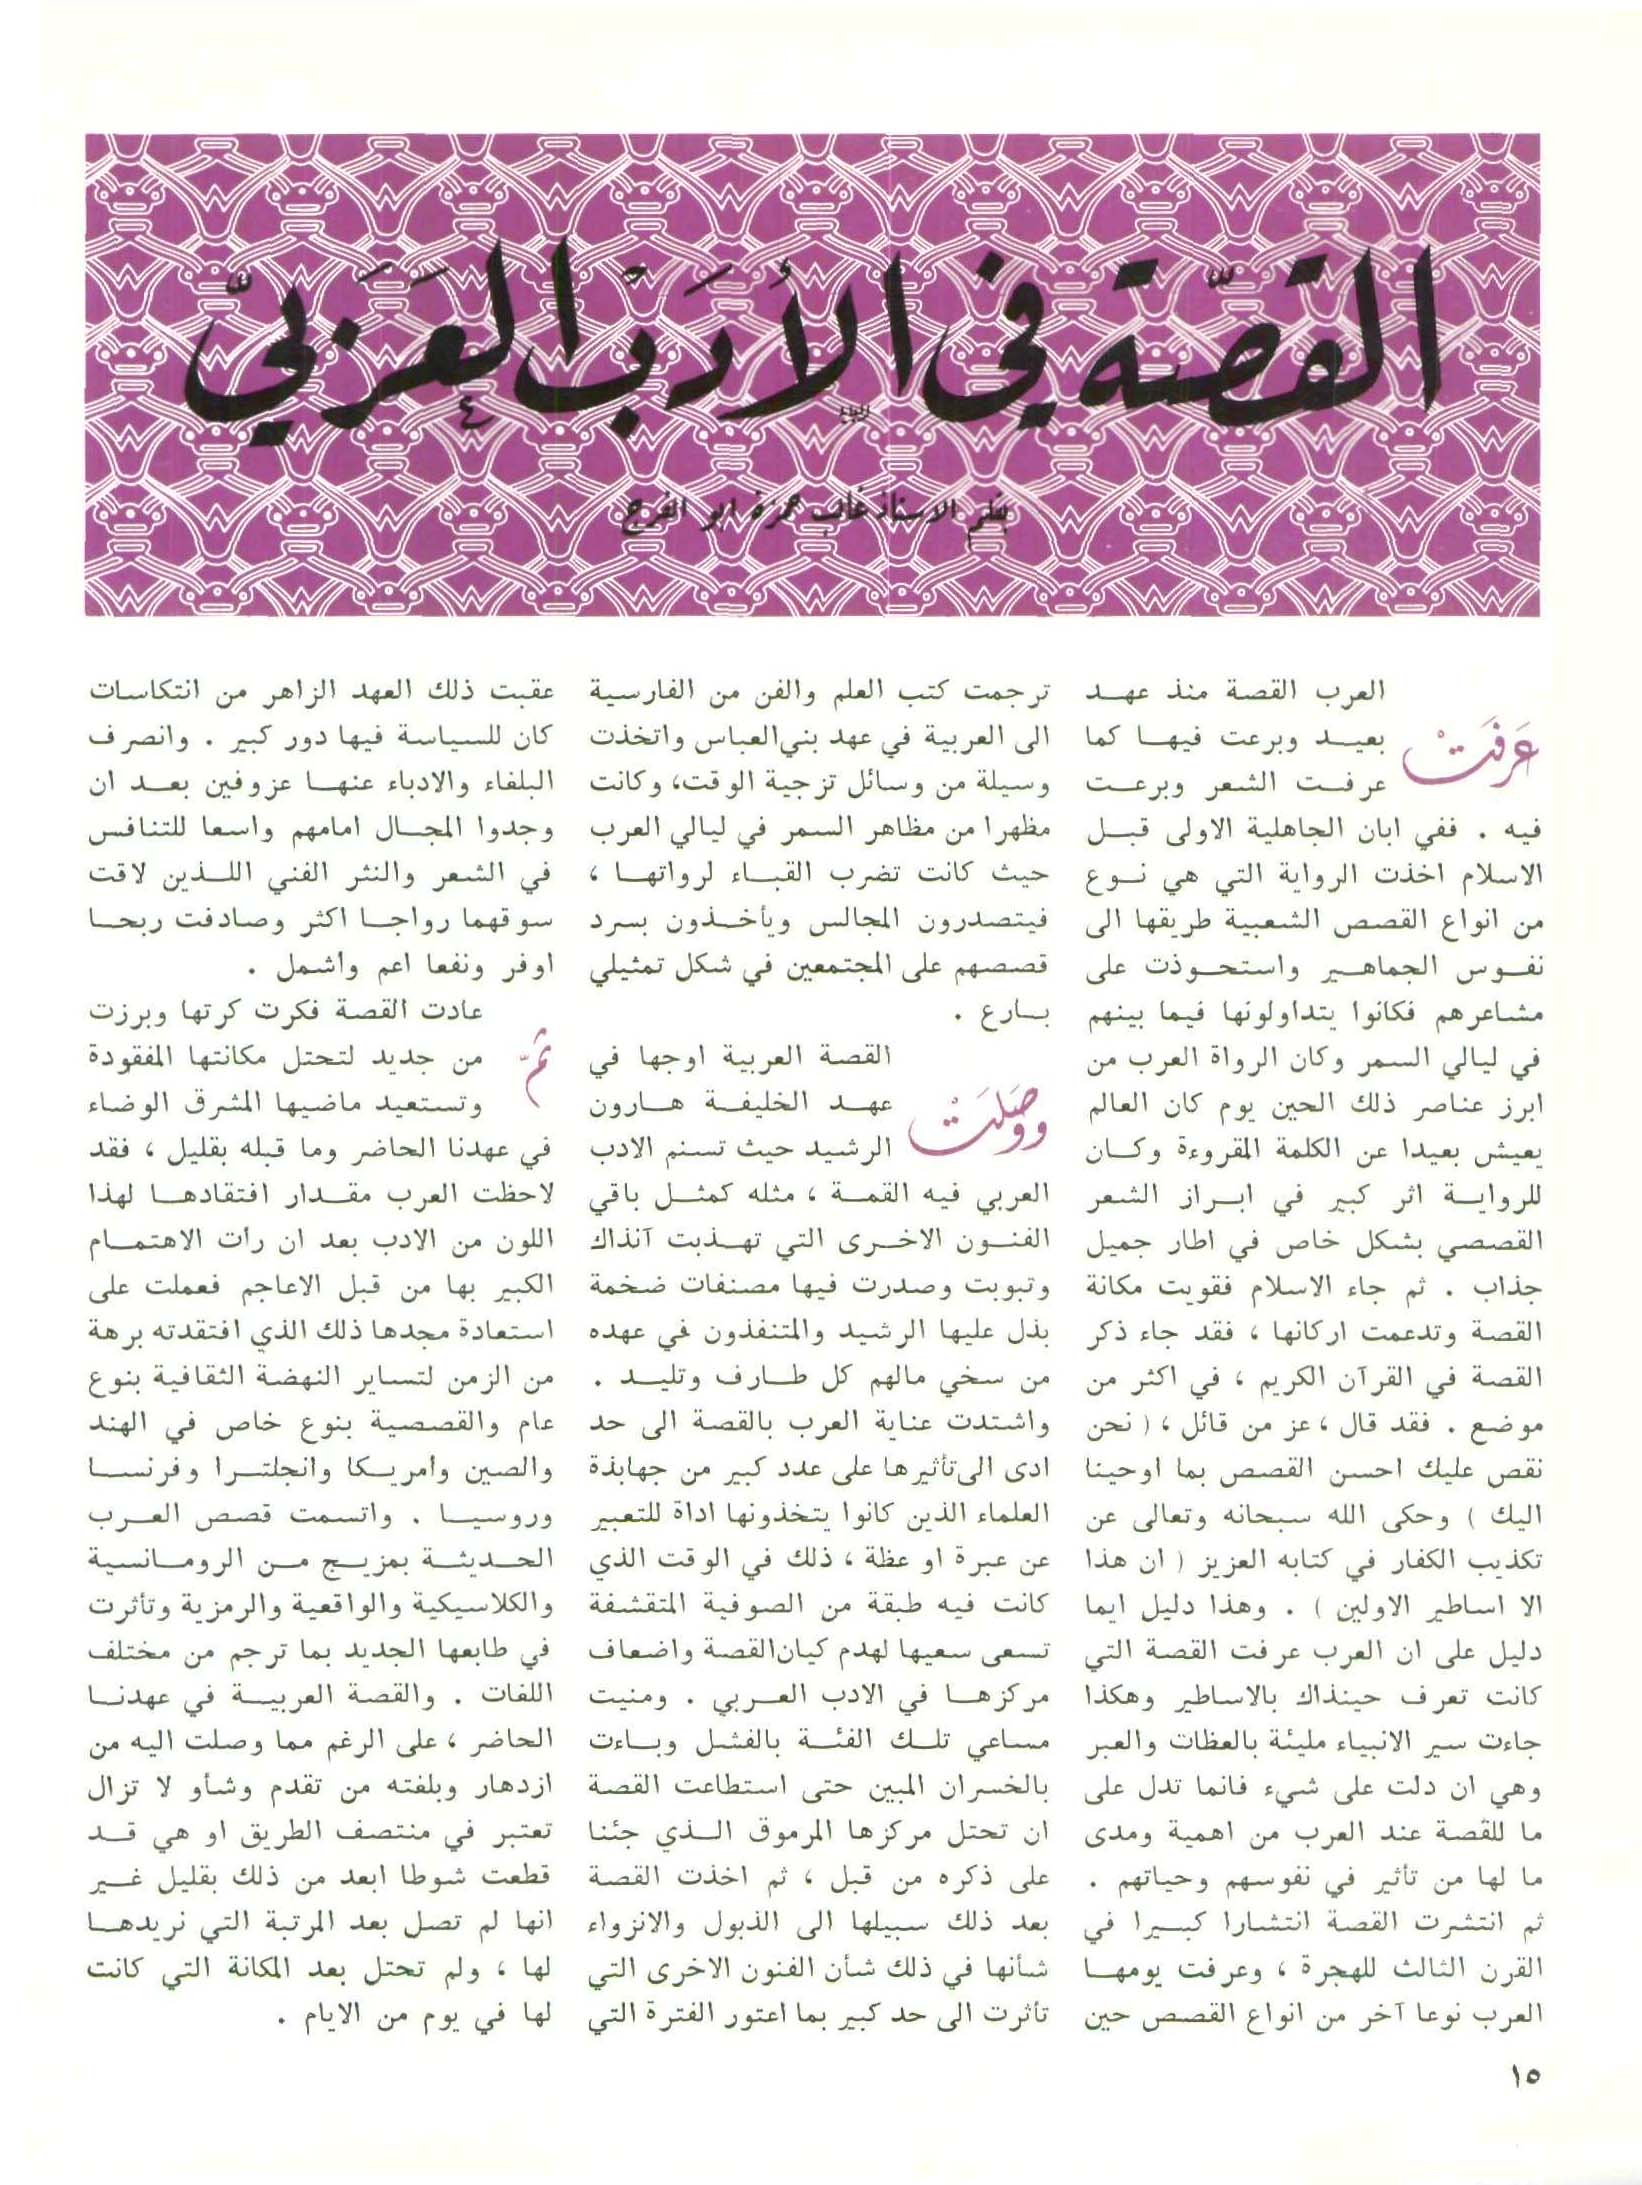 القصّة في الأدب العَرَبيّ
بقلم الاستاذ غالب حمزة ابو الفرج
عَرفَتْ
العرب القصة منذ عهـد
بعيـد وبرعت فيهـا كما
عرفـت الشعر وبرعـت
فيه . ففي ابان الجاهلية الاولى قبـل
الاسلام اخذت الرواية التي هي نـوع
من انواع القصص الشعبية طريقها الى
نفـوس الجماهـير واستحـوذت على
مشاعرهم فكانوا يتداولونها فيما بينهم
في ليالي السمر وكان الرواة العرب من
ابرز عناصر ذلك الحين يوم كان العالم
يعيش بعيدا عن الكلمة المقروءة وكـان
للروايـة اثر كبير في ابـراز الشعر
القصصي بشكل خاص في اطار جميل
جذاب . ثم جاء الاسلام فقويت مكانة
القصة وتدعمت اركانها ، فقد جاء ذكر
القصة في القرآن الكريم ، في اكثر من
موضع . فقد قال ، عز من قائل ، ( نحن
نقص عليك احسن القصص بما اوحينا
اليك ) وحكى الله سبحانه وتعالى عن
تكذيب الكفار في كتابه العزيز ( ان هذا
الا اساطير الاولين ) . وهذا دليل ايما
دليل على ان العرب عرفت القصة التي
كانت تعرف حينذاك بالاساطير وهكذا
جاءت سير الانبياء مليئة بالعظات والعبر
وهي ان دلت على شيء فانما تدل على
ما للقصة عند العرب من اهمية ومدى
ما لها من تأثير في نفوسهم وحياتهم .
ثم انتشرت القصة انتشارا كبـيرا في
القرن الثالث للهجرة ، وعرفت يومهـا
العرب نوعا آخر من انواع القصص حين
ترجمت كتب العلم والفن من الفارسية
الى العربية في عهد بني العباس واتخذت
وسيلة من وسائل تزجية الوقت، وكانت
مظهرا من مظاهر السمر في ليالي العرب
حيث كانت تضرب القبـاء لرواتهـا ،
فيتصدرون المجالس ويأخـذون بسرد
قصصهم على المجتمعين في شكل تمثيلي
بـارع .
ووصَلَتْ
القصة العربية اوجها في
عهـد الخليفـة هـارون
الرشيد حيث تسنم الادب
العربي فيه القمـة ، مثله كمثـل باقي
الفنـون الاخـرى التي تهـذبت آنذاك
وتبوبت وصدرت فيها مصنفات ضخمة
بذل عليها الرشيد والمتنفذون في عهده
من سخي مالهم كل طـارف وتليـد .
واشتدت عناية العرب بالقصة الى حد
ادى الى تأثيرها على عدد كبير من جهابذة
العلماء الذين كانوا يتخذونها اداة للتعبير
عن عبرة او عظة ، ذلك في الوقت الذي
كانت فيه طبقة من الصوفية المتقشفة
تسعى سعيها لهدم كيان القصة واضعاف
مركزهـا في الادب العـربي . ومنيت
مساعي تلـك الفئـة بالفشل وبـاءت
بالخسران المبين حتى استطاعت القصة
ان تحتل مركزها المرموق الـذي جئنا
على ذكره من قبل ، ثم اخذت القصة
بعد ذلك سبيلها الى الذبول والانزواء
شأنها في ذلك شأن الفنون الاخرى التي
تأثرت الى حد كبير بما اعتور الفترة التي
عقبت ذلك العهد الزاهر من انتكاسات
كان للسياسة فيها دور كبير . وانصرف
البلغاء والادباء عنهـا عزوفين بعـد ان
وجدوا المجـال امامهم واسعا للتنافس
في الشعر والنثر الفني اللـذين لاقت
سوقهما رواجـا اكثر وصادفت ربحـا
اوفر ونفعا اعم واشمل .
ثمّ
عادت القصة فكرت كرتها وبرزت
من جديد لتحتل مكانتها المفقودة
وتستعيد ماضيها المشرق الوضاء
في عهدنا الحاضر وما قبله بقليل ، فقد
لاحظت العرب مقـدار افتقادهـا لهذا
اللون من الادب بعد ان رأت الاهتمـام
الكبير بها من قبل الاعاجم فعملت على
استعادة مجدها ذلك الذي افتقدته برهة
من الزمن لتساير النهضة الثقافية بنوع
عام والقصصية بنوع خاص في الهند
والصين وامريـكا وانجلتـرا وفرنسـا
وروسيـا . واتسمت قصص العـرب
الحـديثـة بمزيـج مـن الرومـانسية
والكلاسيكية والواقعية والرمزية وتأثرت
في طابعها الجديد بما ترجم من مختلف
اللغات . والقصة العربيـة في عهدنـا
الحاضر ، على الرغم مما وصلت اليه من
ازدهار وبلغته من تقدم وشأو لا تزال
تعتبر في منتصف الطريق او هي قـد
قطعت شوطا ابعد من ذلك بقليل غـير
انها لم تصل بعد المرتبة التي نريدهـا
لها ، ولم تحتل بعد المكانة التي كانت
لها في يوم من الايام .
١٥